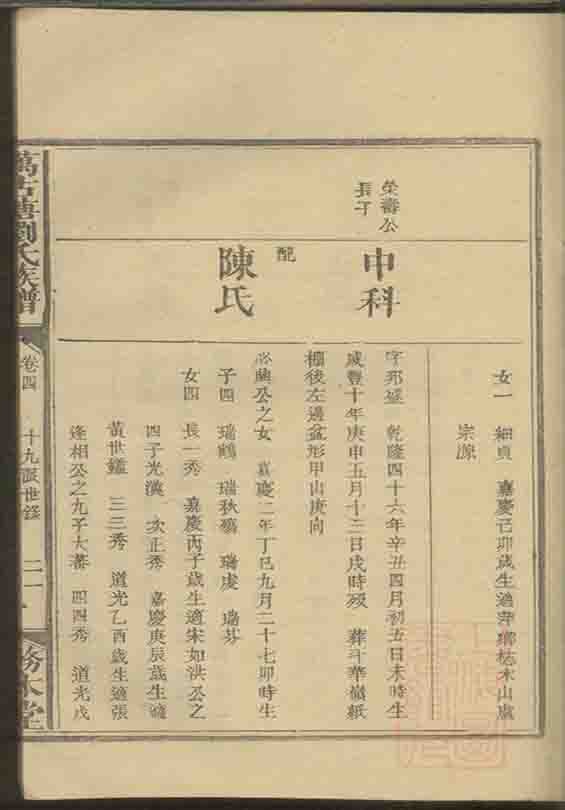 女一 細貞 嘉慶己卯歲生適萍鄉 木山盧
宗源
榮壽公
長子
中科
字邦盛 乾隆四十六年辛丑四月初五日未時生
咸豐十年庚申五月十三日戌時歿 葬斗華嶺紙
棚後左邊盆形甲山庚向
配
陳氏
必興公之女 嘉慶二年丁巳九月二十七卯時生
子四 瑞鶴 瑞秋殤 瑞虔 瑞芬
女四 長一秀 嘉慶丙子歲生適宋如洪公之
四子光漢 次正秀 嘉慶庚辰歲生適
黃世鑑 三三秀 道光乙酉歲生適張
逢相公之九子大蕃 四四秀 道光戊
萬古塘劉氏族譜
卷四
十九派世錄
務本堂